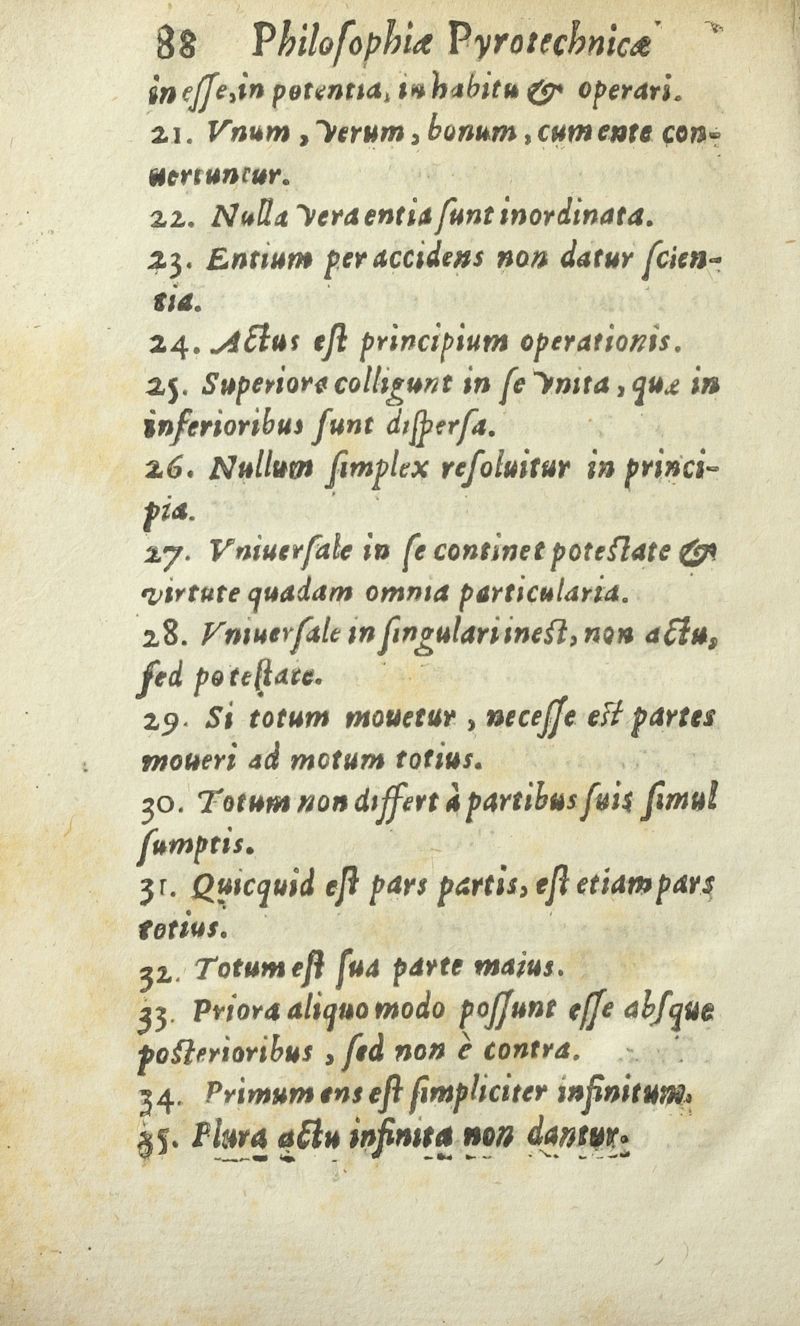 88 Philoſophiæ Pyrotechnicæ
in eſſe, in potentia, in habitu & operari.
21. Vnum, verum, bonum, cum ente con-
uertuntur.
22. Nulla vera entia ſunt inordinata.
23. Entium per accidens non datur ſcien-
tia.
24. Actus eſt principium operationis.
25. Superiora colligunt in ſe vnita, quæ in
inferioribus ſunt diſperſa.
26. Nullum ſimplex reſoluitur in princi-
pia.
27. Vniuerſale in ſe continet poteſtate &
virtute quadam omnia particularia.
28. Vniuerſale in ſingulari ineſt, non actu,
ſed poteſtate.
29. Si totum mouetur, neceſſe eſt partes
moueri ad motum totius.
30. Totum non differt à partibus ſuis ſimul
ſumptis.
31. Quicquid eſt pars partis, eſt etiam pars
totius.
32. Totum eſt ſua parte maius.
33. Priora aliquo modo poſſunt eſſe abſque
poſterioribus, ſed non è contra.
34. Primum ens eſt ſimpliciter infinitum.
35. Plura actu infinita non dantur.